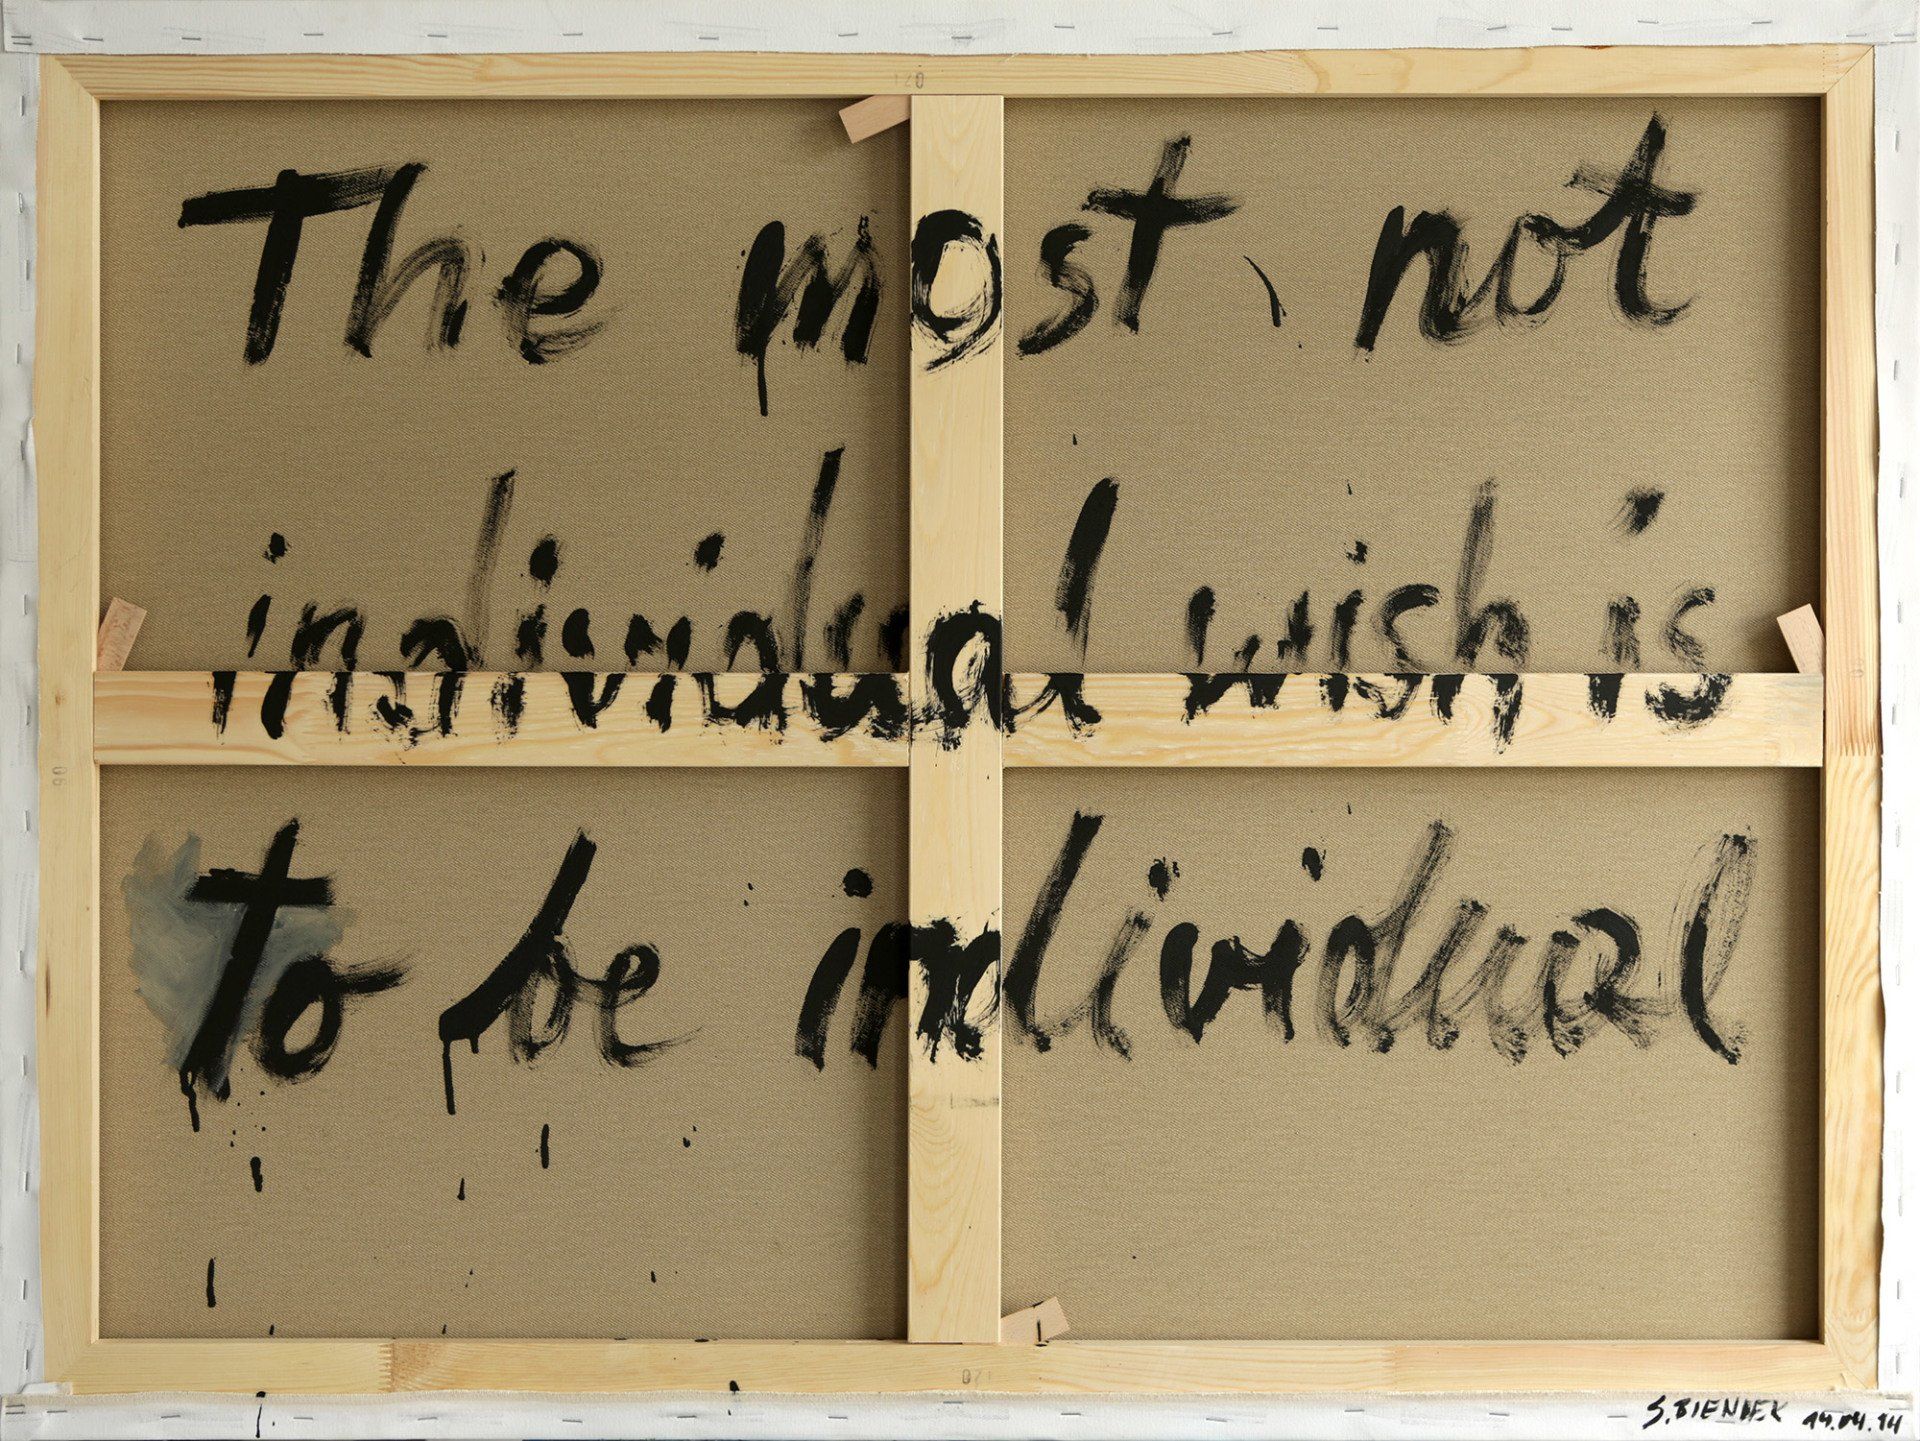 120
The most, not
individual wish is
to be individual
90
120
S. BIENDEK 14.04.14